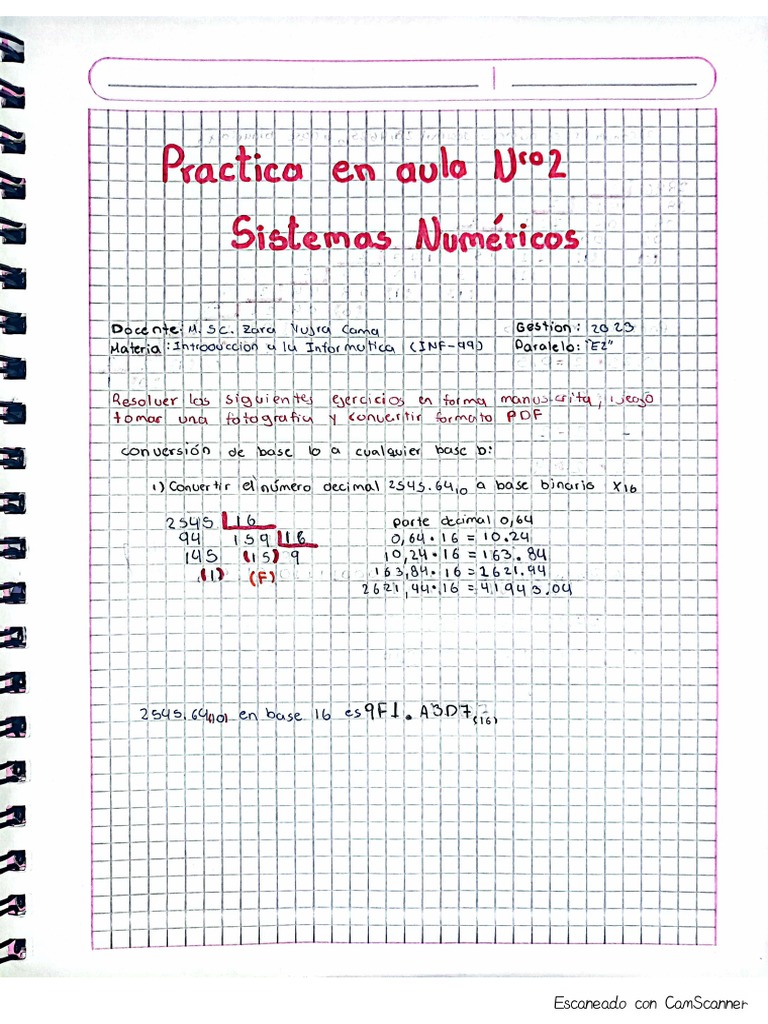 Practica en aula Nro 2
Sistemas Numéricos
Docente: M. SC. Zara Yujra Cama Gestion: 2023
Materia: Introduccion a la Informatica (INF-99) Paralelo: "E2"
Resolver las siguientes ejercicios en forma manuscrita, luego
tomar una fotografia y convertir formato PDF
conversión de base 10 a cualquier base b:
1) Convertir el número decimal 2545.64₁₀ a base binario X16
2545 16 parte decimal 0,64
94 159 16 0,64·16 = 10.24
145 (15) 9 10,24·16 = 163.84
(1) (F) 163,84·16 = 2621.94
2621,44·16 = 41943.04
2545.64(10) en base 16 es 9F1. A3D7(16)
Escaneado con CamScanner